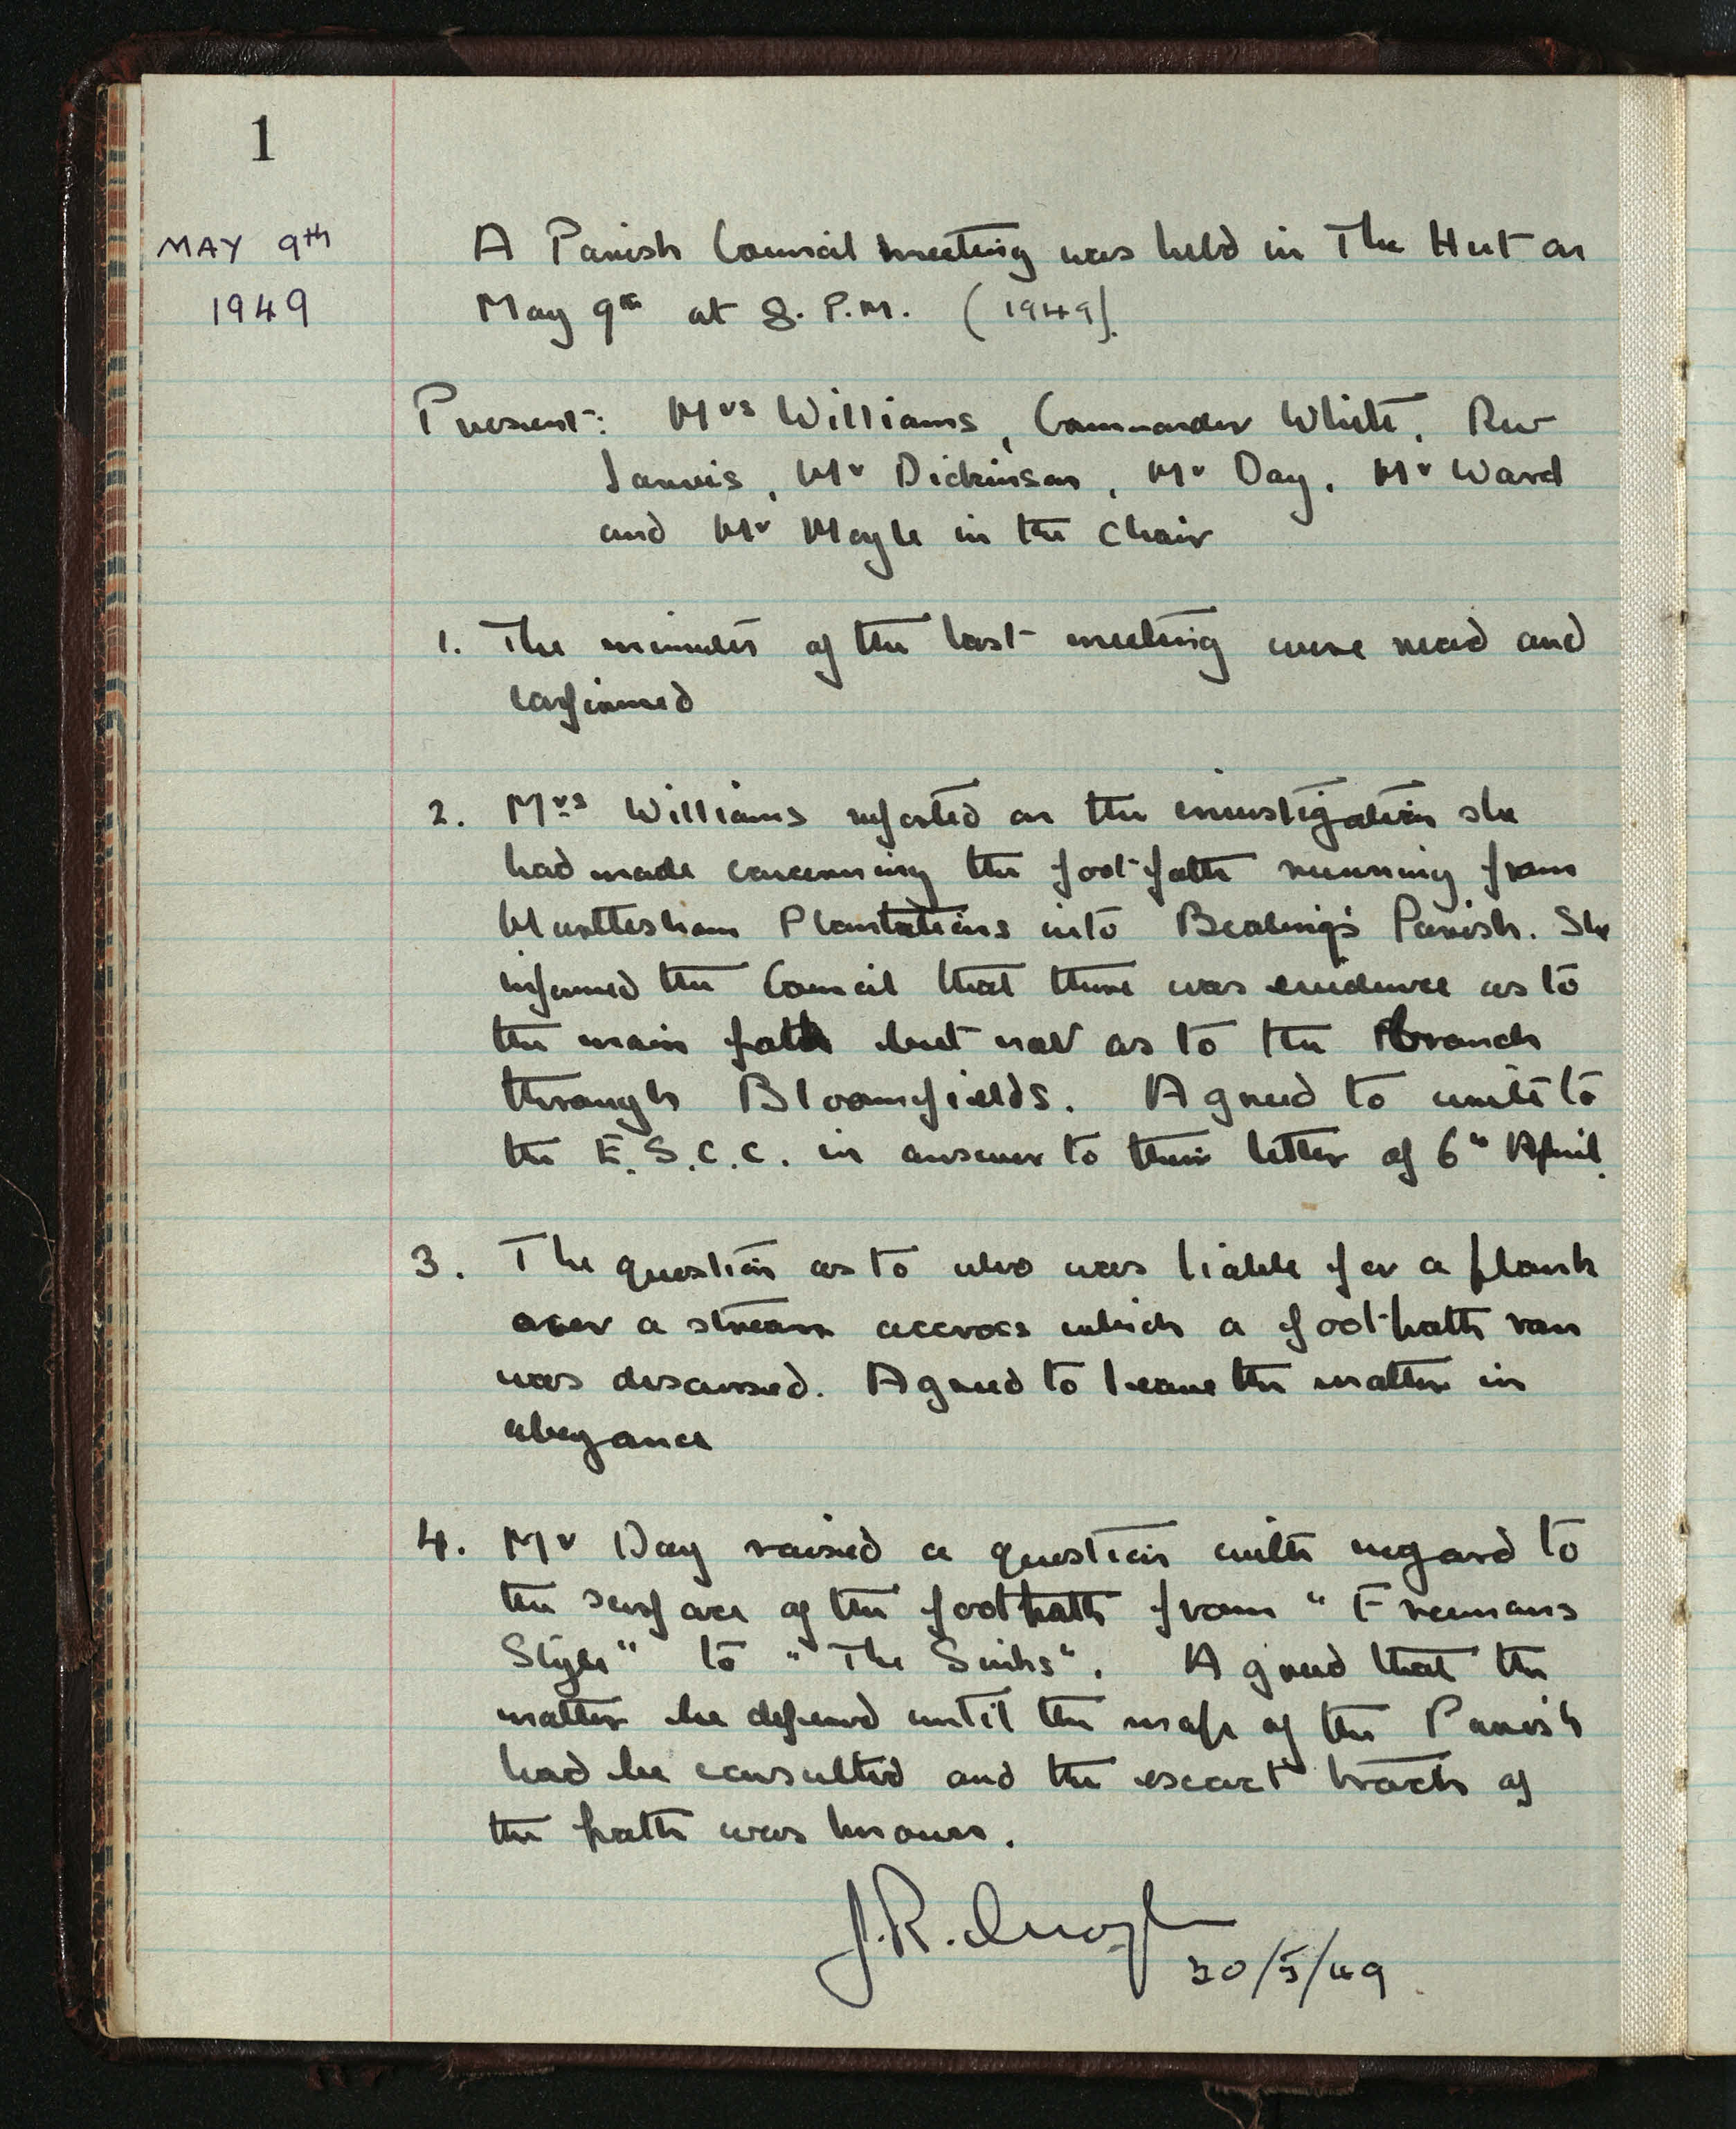 1
MAY 9th
1949
A Parish Council meeting was held in The Hut on
May 9th at 8. P.M. (1949).
Present: Mrs Williams, Commander White, Rev
Jarvis, Mr Dickinson, Mr Day, Mr Ward
and Mr Moyle in the Chair
1. The minutes of the last meeting were read and
confirmed
2. Mrs Williams reported on the investigation she
had made concerning the footpath running from
Martlesham Plantations into Bealings Parish. She
informed the Council that there was evidence as to
the main path but not as to the branch
through Bloomfields. Agreed to write to
the E.S.C.C. in answer to their letter of 6th April.
3. The question as to who was liable for a plank
over a stream accross which a footpath ran
was discussed. Agreed to leave the matter in
abeyance
4. Mr Day raised a question with regard to
the surface of the footpath from "Freemans
Style" to "The Sinks". Agreed that the
matter be deferred until the map of the Parish
had be consulted and the exact track of
the path was known.
J.R. Moyle
30/5/49